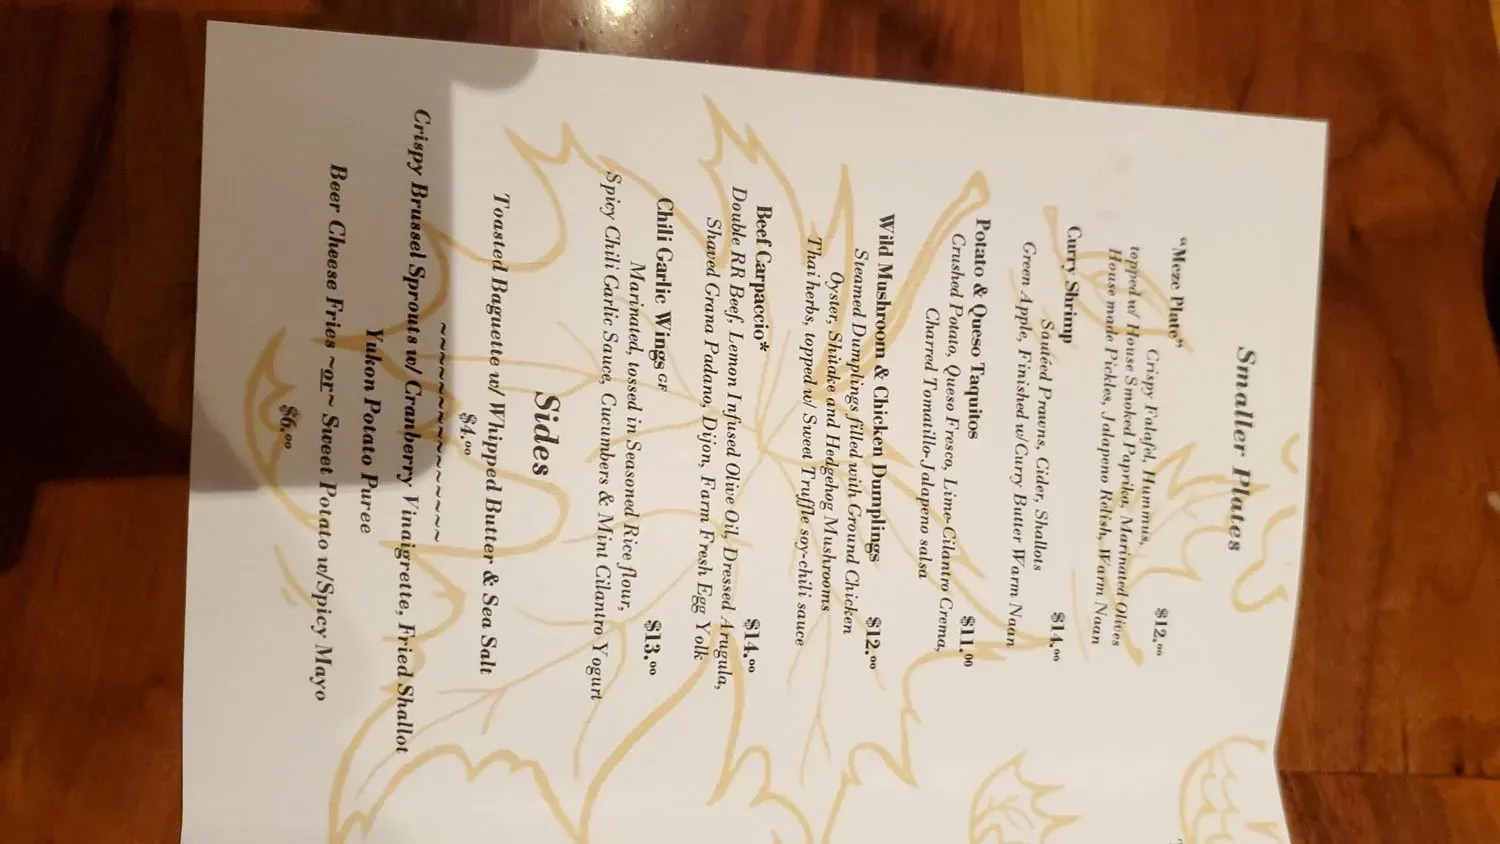 Smaller Plates
"Meze Plate" $12.00
Crispy Falafel, Hummus,
topped w/ House Smoked Paprika, Marinated Olives
House made Pickles, Jalapeno Relish, Warm Naan
Curry Shrimp $14.00
Sautéed Prawns, Cider, Shallots
Green Apple, Finished w/Curry Butter Warm Naan
Potato & Queso Taquitos $11.00
Crushed Potato, Queso Fresco, Lime-Cilantro Crema,
Charred Tomatillo-Jalapeno salsa
Wild Mushroom & Chicken Dumplings $12.00
Steamed Dumplings filled with Ground Chicken
Oyster, Shitake and Hedgehog Mushrooms
Thai herbs, topped w/ Sweet Truffle soy-chili sauce
Beef Carpaccio* $14.00
Double RR Beef, Lemon Infused Olive Oil, Dressed Arugula,
Shaved Grana Padano, Dijon, Farm Fresh Egg Yolk
Chili Garlic Wings GF $13.00
Marinated, tossed in Seasoned Rice flour,
Spicy Chili Garlic Sauce, Cucumbers & Mint Cilantro Yogurt
Sides
Toasted Baguette w/ Whipped Butter & Sea Salt
$4.00
~~~~~~~~~~~~~~
Crispy Brussel Sprouts w/ Cranberry Vinaigrette, Fried Shallot
Yukon Potato Puree
Beer Cheese Fries ~or~ Sweet Potato w/Spicy Mayo
$6.00